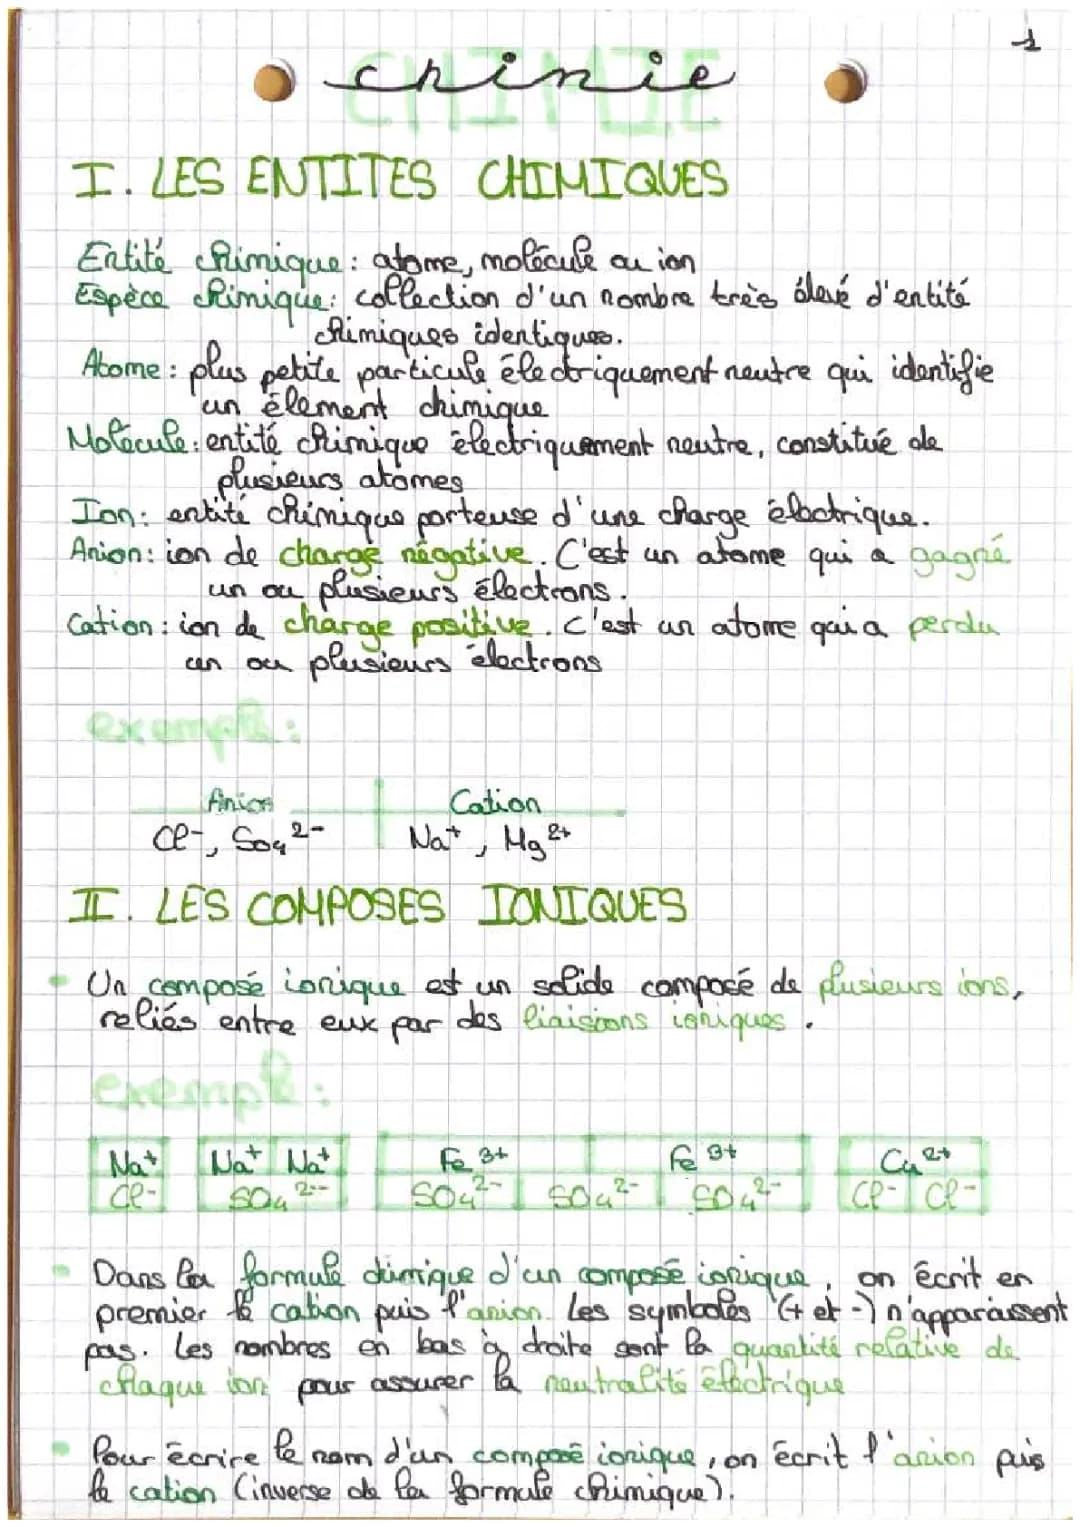 1
CHIMIE
chimie
I. LES ENTITES CHIMIQUES
Entité chimique : atome, molécule ou ion
Espèce chimique : collection d'un nombre très élevé d'entité
chimiques identiques.
Atome : plus petite particule électriquement neutre qui identifie
un élement chimique
Molécule : entité chimique électriquement neutre, constitué de
plusieurs atomes
Ion : entité chimique porteuse d'une charge électrique.
Anion : ion de charge négative. C'est un atome qui a gagné
un ou plusieurs électrons.
Cation : ion de charge positive. C'est un atome qui a perdu
un ou plusieurs électrons
exemple :
Anion Cation
Cl⁻, SO₄²⁻ Na⁺, Mg²⁺
II. LES COMPOSES IONIQUES
Un composé ionique est un solide composé de plusieurs ions,
reliés entre eux par des liaisions ioniques.
exemple :
Na⁺ Na⁺ Na⁺ Fe³⁺ Fe³⁺ Cu²⁺
Cl⁻ SO₄²⁻ SO₄²⁻ SO₄²⁻ SO₄²⁻ Cl⁻ Cl⁻
Dans la formule chimique d'un composé ionique, on écrit en
premier le cation puis l'anion. Les symboles (+ et -) n'apparaissent
pas. Les nombres en bas à droite sont la quantité relative de
chaque ion pour assurer la neutralité électrique
Pour écrire le nom d'un composé ionique, on écrit l'anion puis
le cation (inverse de la formule chimique).